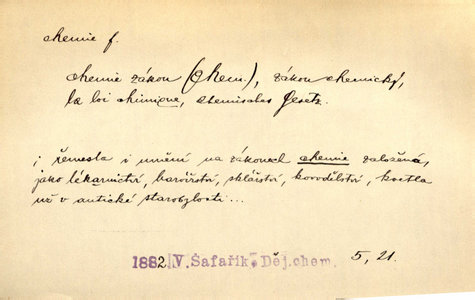 chemie f.
chemie zákon (Chem.), zákon chemický,
la loi chimique, chemisches Gesetz.
i řemesla i umění na zákonech chemie založená,
jako lékarnictví, barvířství, sklářství, kovodělství, kvetla
už v antické starobylosti...
1882 V. Šafařík, Děj. chem. 5, 21.